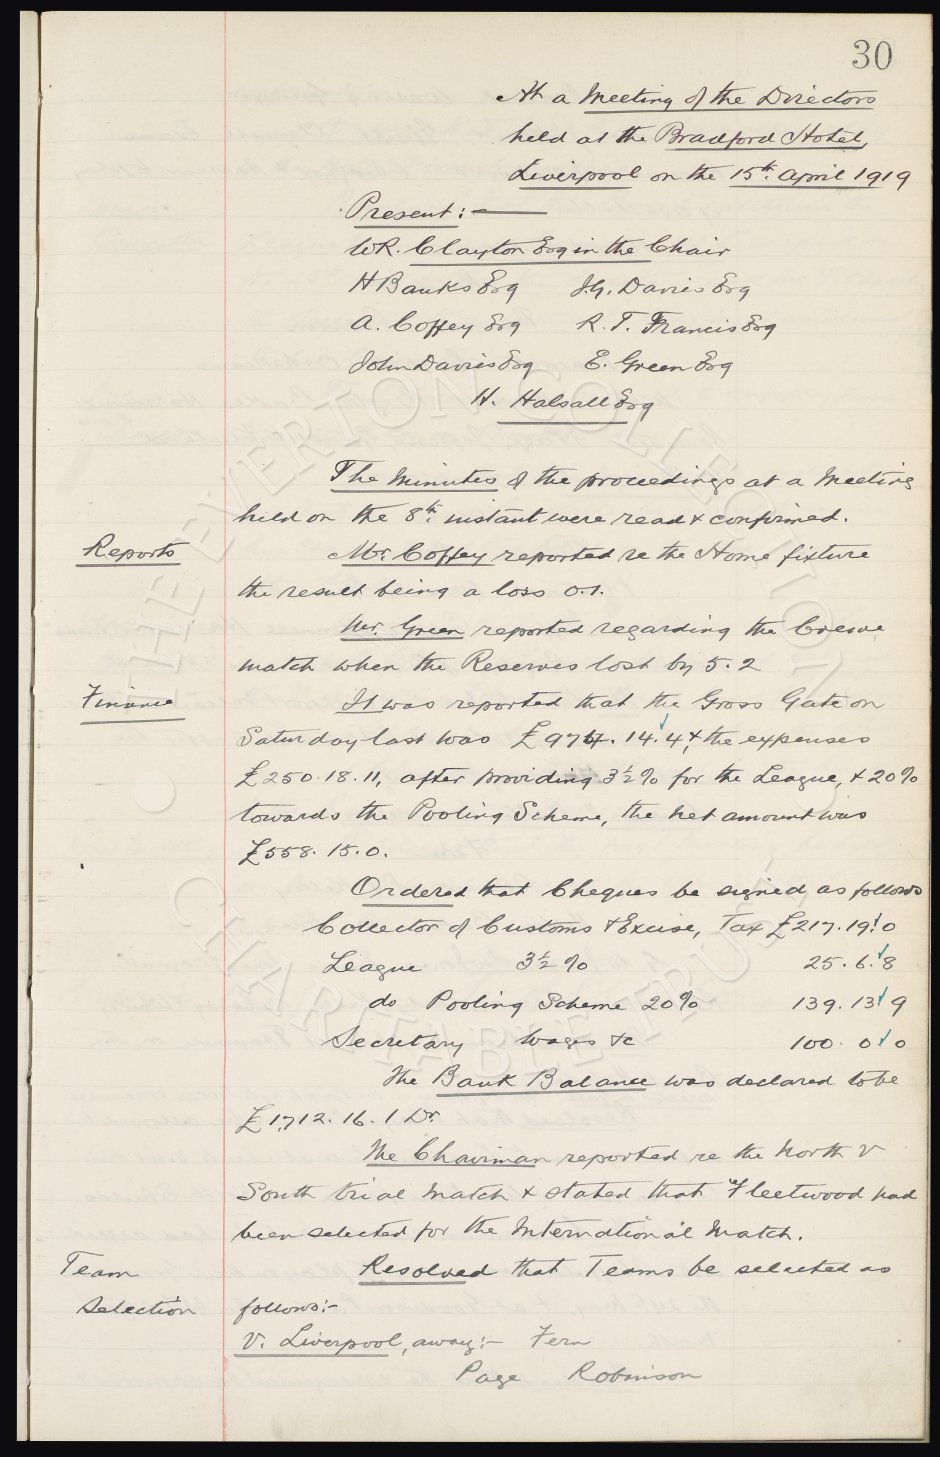 30
At a Meeting of the Directors
held at the Bradford Hotel,
Liverpool on the 15th. April 1919
Present:—
W.R. Clayton Esq in the Chair
H Banks Esq J.G. Davies Esq
A. Coffey Esq R. T. Francis Esq
John Davies Esq E. Green Esq
H. Halsall Esq
The Minutes of the proceedings at a Meeting
held on the 8th. instant were read & confirmed.
Reports
Mr. Coffey reported re the Home fixture
the result being a loss 0.1.
Mr. Green reported regarding the Crewe
match when the Reserves lost by 5.2
Finance
It was reported that the Gross Gate on
Saturday last was £974.14.4, & the expenses
£250.18.11, after providing 3½% for the League, & 20%
towards the Pooling Scheme, the net amount was
£558.15.0.
Ordered that Cheques be signed as follows
Collector of Customs & Excise, Tax £217.19.0
League 3½% 25.6.8
do Pooling Scheme 20% 139.13.9
Secretary Wages &c 100.0.0
The Bank Balance was declared to be
£1,712.16.1 Dr.
The Chairman reported re the North v
South trial Match & stated that Fleetwood had
been selected for the International Match.
Team
Selection
Resolved that Teams be selected as
follows:-
V. Liverpool, away:- Fern
Page Robinson
THE EVERTON COLLECTION
CHARITABLE TRUST